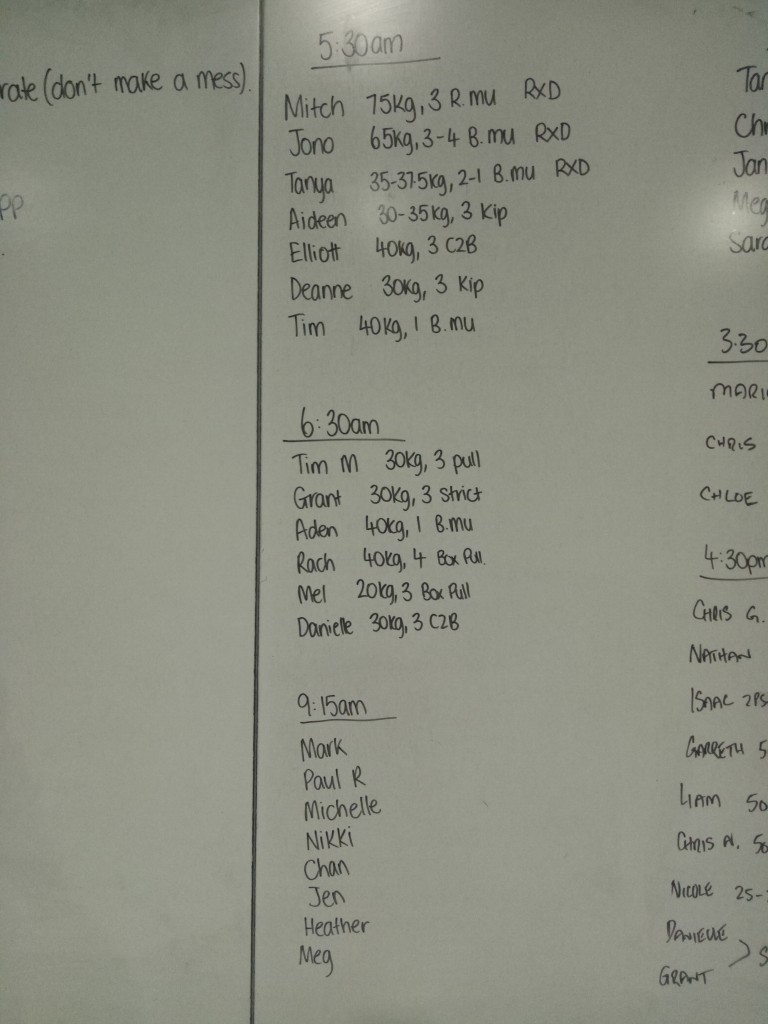 rate (don't make a mess).
PP
5:30am
Mitch 75kg, 3 R.mu RXD
Jono 65kg, 3-4 B.mu RXD
Tanya 35-37.5kg, 2-1 B.mu RXD
Aideen 30-35kg, 3 Kip
Elliott 40kg, 3 C2B
Deanne 30kg, 3 Kip
Tim 40kg, 1 B.mu
6:30am
Tim M 30kg, 3 pull
Grant 30kg, 3 Strict
Aden 40kg, 1 B.mu
Rach 40kg, 4 Box Pull
Mel 20kg, 3 Box Pull
Danielle 30kg, 3 C2B
9:15am
Mark
Paul R
Michelle
Nikki
Chan
Jen
Heather
Meg
Tan
Chr
Jan
Meg
Sara
3:30
MARI
CHRIS
CHLOE
4:30pm
CHRIS G.
NATHAN
ISAAC
GARRETH 5
LIAM 50
CHRIS N. 50
NICOLE 25-
DANIELLE
GRANT